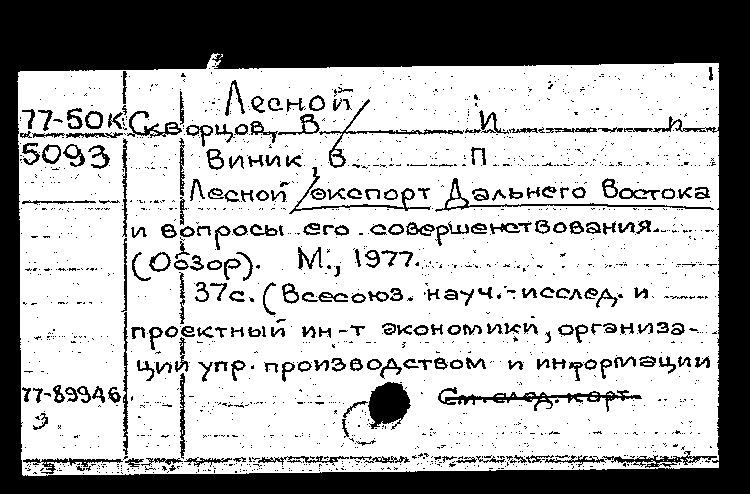 Лесной
77-50к Скворцов, В И п
5093 Виник, В П
Лесной экспорт Дальнего Востока
и вопросы его совершенствования.
(Обзор). М., 1977.
37с. (Всесоюз. науч.-исслед. и
проектный ин-т экономики, организа-
ции упр. производством и информации
77-89946
См. след. карт.